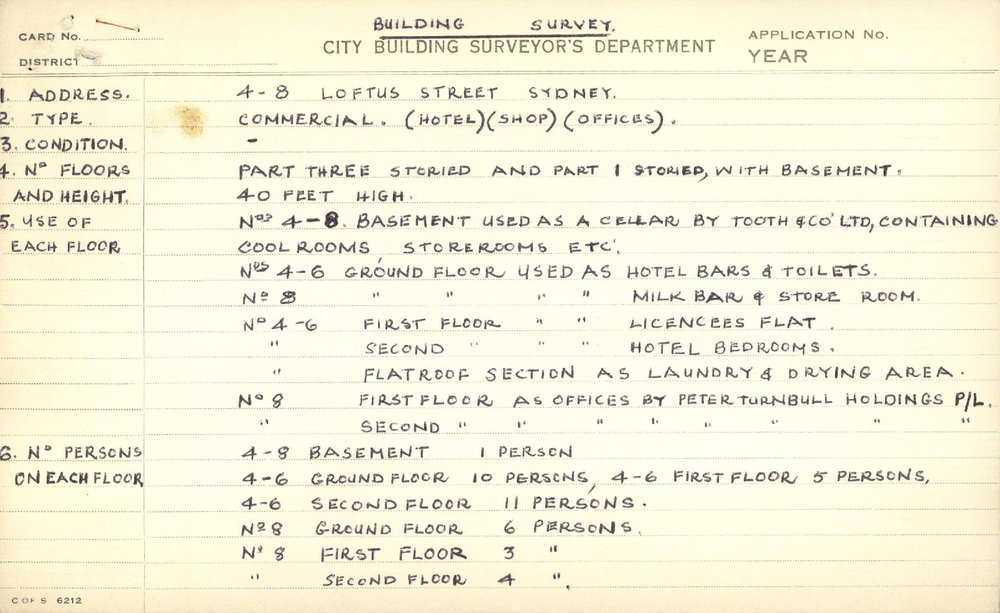 BUILDING SURVEY.
CARD No.
CITY BUILDING SURVEYOR'S DEPARTMENT
APPLICATION No.
DISTRICT
YEAR
1. ADDRESS. 4-8 LOFTUS STREET SYDNEY.
2. TYPE. COMMERCIAL. (HOTEL)(SHOP)(OFFICES).
3. CONDITION. -
4. No FLOORS PART THREE STORIED AND PART 1 STORIED, WITH BASEMENT.
AND HEIGHT. 40 FEET HIGH.
5. USE OF Nos 4-8. BASEMENT USED AS A CELLAR BY TOOTH & CO' LTD, CONTAINING
EACH FLOOR COOL ROOMS, STOREROOMS ETC'.
Nos 4-6 GROUND FLOOR USED AS HOTEL BARS & TOILETS.
No 8 " " " " MILK BAR & STORE ROOM.
No 4-6 FIRST FLOOR " " LICENCEES FLAT.
" SECOND " " " HOTEL BEDROOMS.
" FLATROOF SECTION AS LAUNDRY & DRYING AREA.
No 8 FIRST FLOOR AS OFFICES BY PETER TURNBULL HOLDINGS P/L.
" SECOND " " " " " " " "
6. No PERSONS 4-8 BASEMENT 1 PERSON
ON EACH FLOOR 4-6 GROUND FLOOR 10 PERSONS, 4-6 FIRST FLOOR 5 PERSONS,
4-6 SECOND FLOOR 11 PERSONS.
No 8 GROUND FLOOR 6 PERSONS.
No 8 FIRST FLOOR 3 "
" SECOND FLOOR 4 ".
C OF S 6212